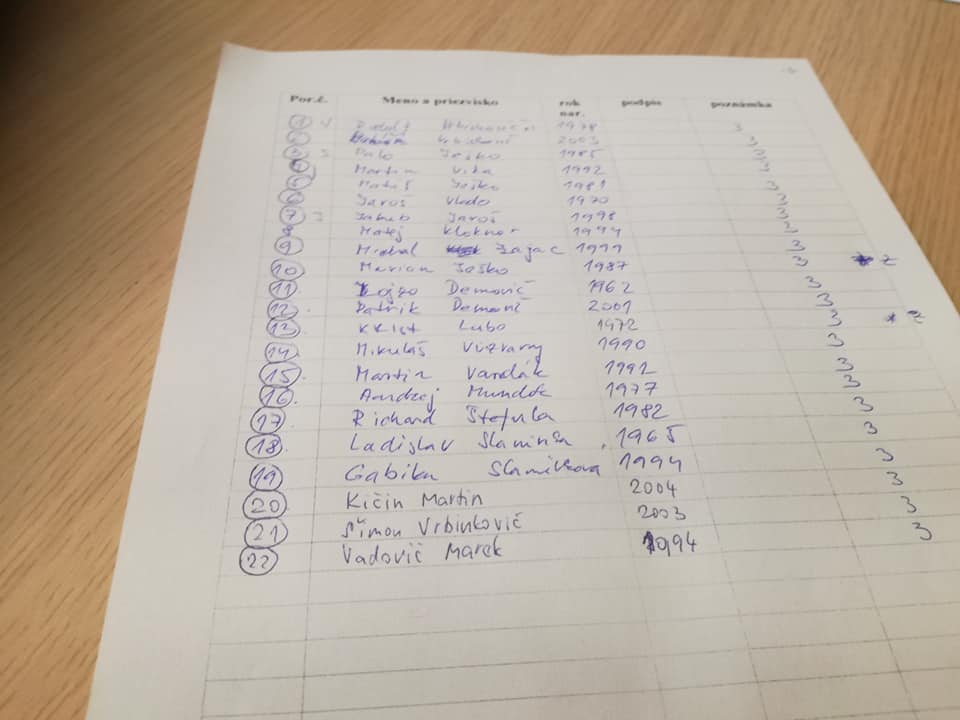 Por.č. Meno a priezvisko rok nar. podpis poznámka
1 1978 3
2 2003 3
3 Palo Ješko 1985 3
4 Martin Vika 1992 3
5 Matúš Ješko 1981 3
6 Jaroš Vlado 1970 3
7 Jakub Jaroš 1998 3
8 Matej Klokner 1994 3
9 Michal Zajac 1999 3
10 Marian Ješko 1987 3 * z
11 Lojzo Demovič 1962 3
12. Patrik Demovič 2001 3
13. Krist Lubo 1972 3 * z
14 Mikuláš Vyzvary 1990 3
15. Martin Vandák 1992 3
16. Andrzej Mundok 1977 3
17. Richard Štefula 1982 3
18. Ladislav 1965 3
19 Gabika Slamikova 1994 3
20 Kičin Martin 2004 3
21 Šimon Vrbinkovič 2003 3
22 Vadovič Marek 1994 3